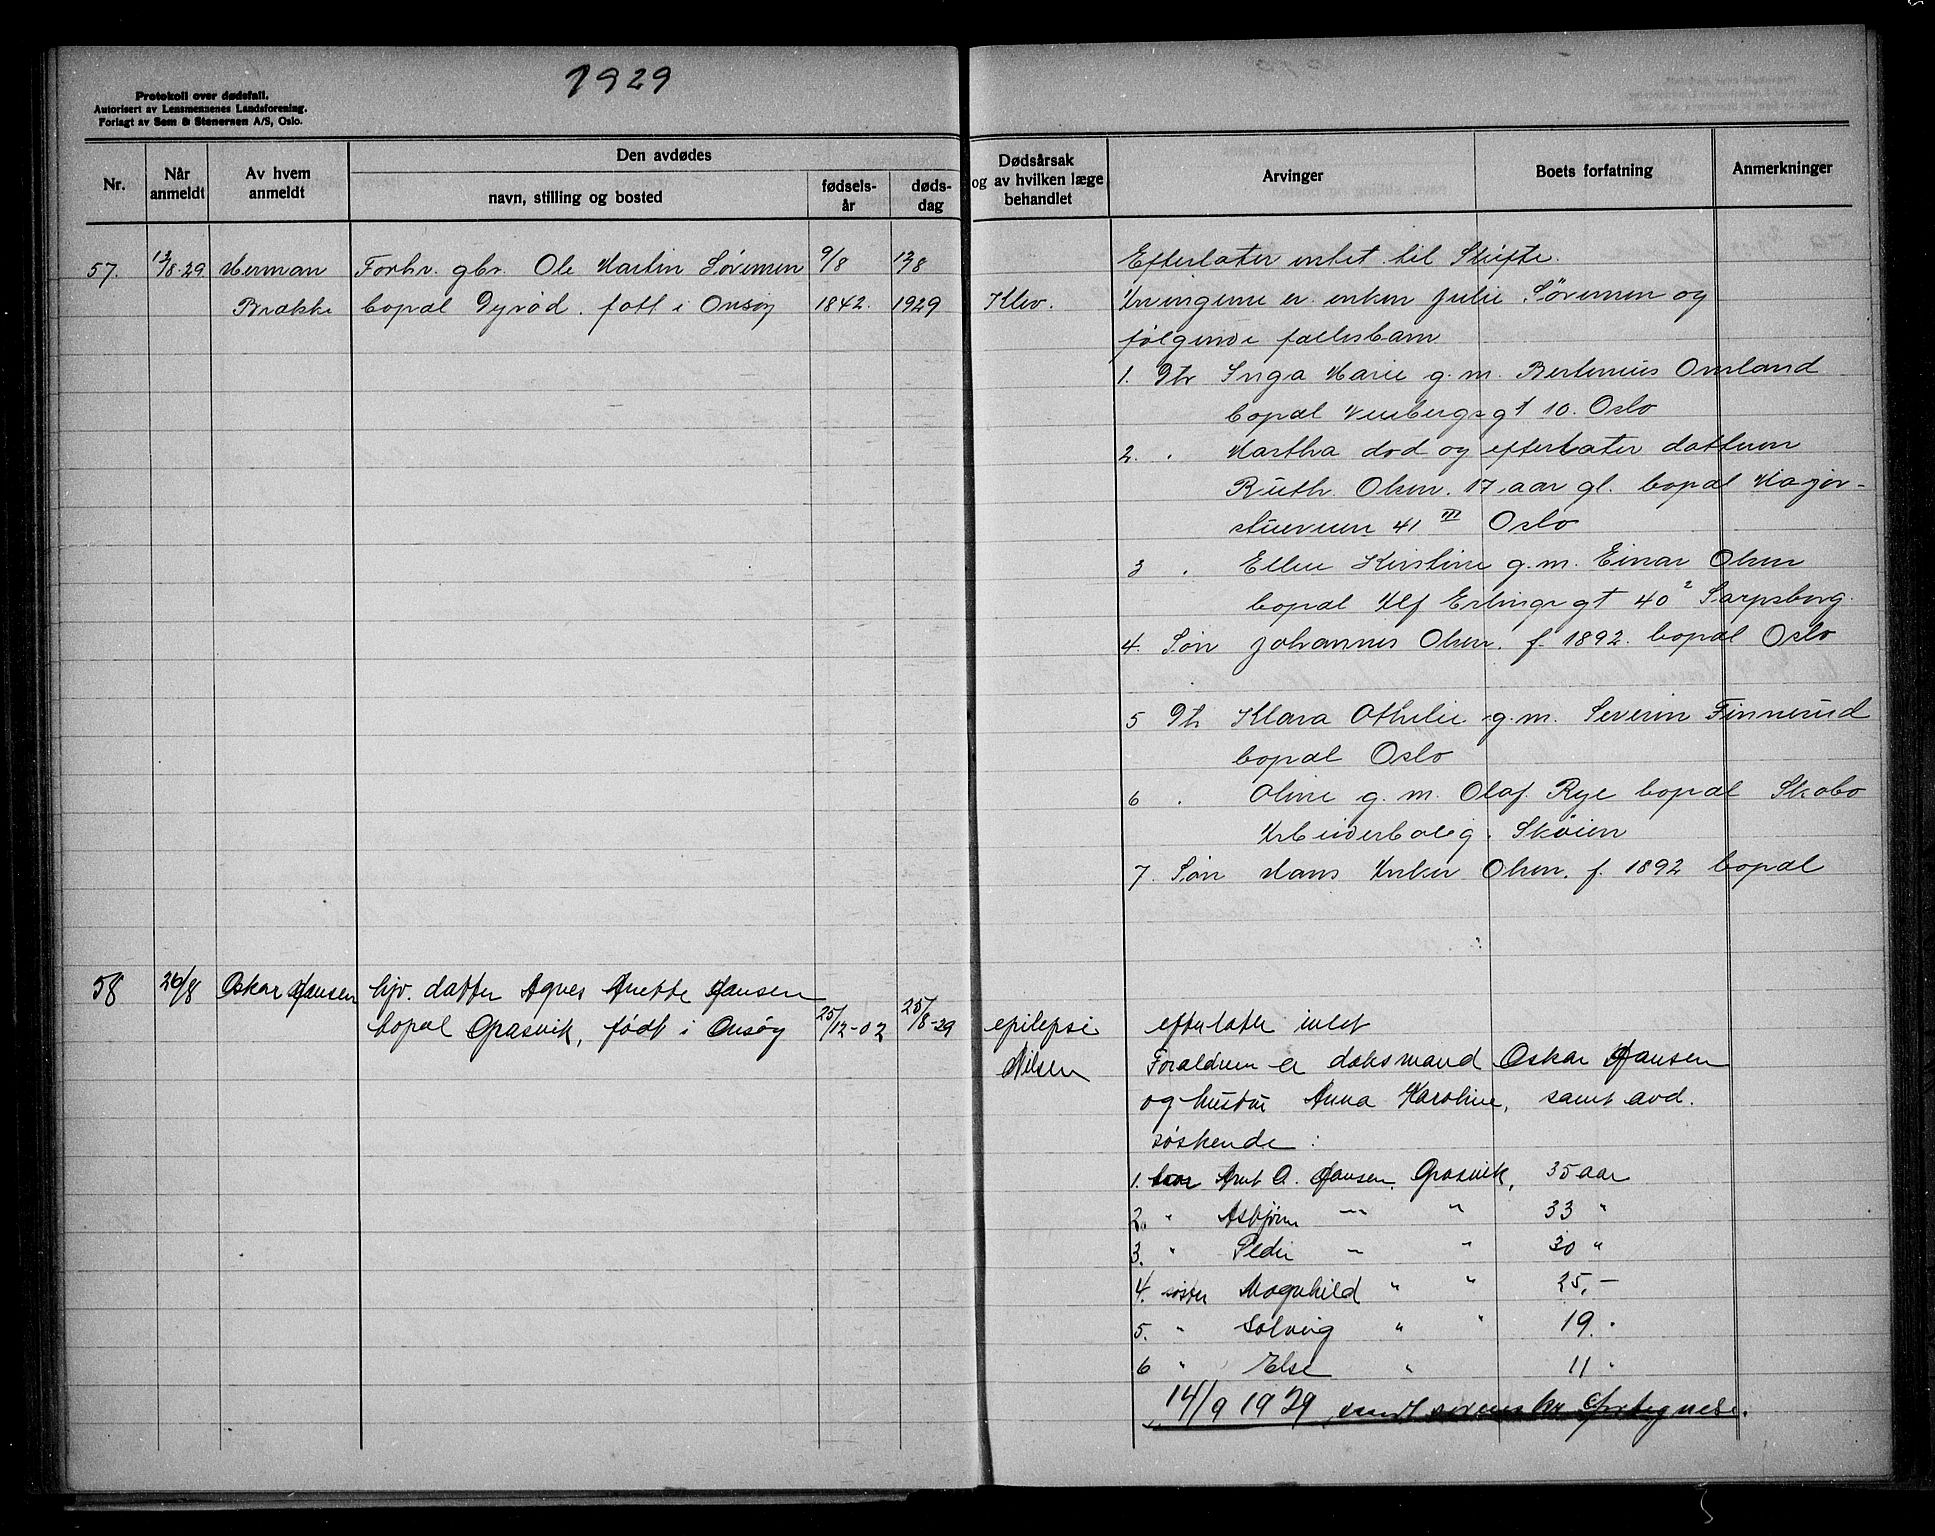 1929
Protokoll over dødsfall.
Autorisert av Lensmennenes Landsforening.
Forlagt av Sem & Stenersen A/S, Oslo.
Nr.
Når anmeldt
Av hvem anmeldt
Den avdødes
navn, stilling og bosted
fødsels-år
døds-dag
Dødsårsak og av hvilken læge behandlet
Arvinger
Boets forfatning
Anmerkninger
57. 13/8-29 Herman Forhv. gbr. Ole Martin Sørensen 9/8 13/8
Brække bopal Dyrød. født i Onsøy 1842. 1929 Klev.
Efterlater intet til Skifte.
Arvingerne er enken Julie Sørensen og
følgende fællesbarn
1. Dtr Inga Marie g.m. Bertinius Omland
bopal Vensbergs gt 10. Oslo
2. " Martha død og efterlater datteren
Ruth Olsen. 17 aar gl. bopal Major-
stuerveien 41 III Oslo
3 " Ellen Kirstine g.m. Einar Olsen
bopal Alf Erlings gt 40² Sarpsborg.
4. Søn Johannes Olsen. f. 1892. bopal Oslo
5 Dtr Klara Othilie g.m. Severin Finnerud
bopal Oslo
6 " Oline g.m. Olaf Rye bopal Skabo
Arbeiderbolig. Skøien
7. Søn Hans Anker Olsen. f. 1892 bopal
58 26/8 Oskar Hansen hjv. datter Agnes Anette Hansen
bopal Græsvik, født i Onsøy 25/12-02 25/8-29 epilepsi
Nilsen
efterlater intet
Forældrene er daksmand Oskar Hansen
og hustru Anna Karoline, samt avd.
søskende:
1. bror Arnt O. Hansen, Græsvik, 35 aar
2. " Asbjørn — " 33 "
3. " Peder — " 30 "
4. søster Magnhild " " 25, —
5. " Solveig " " 19. "
6 " Else " 11 "
14/9 1929 sendt